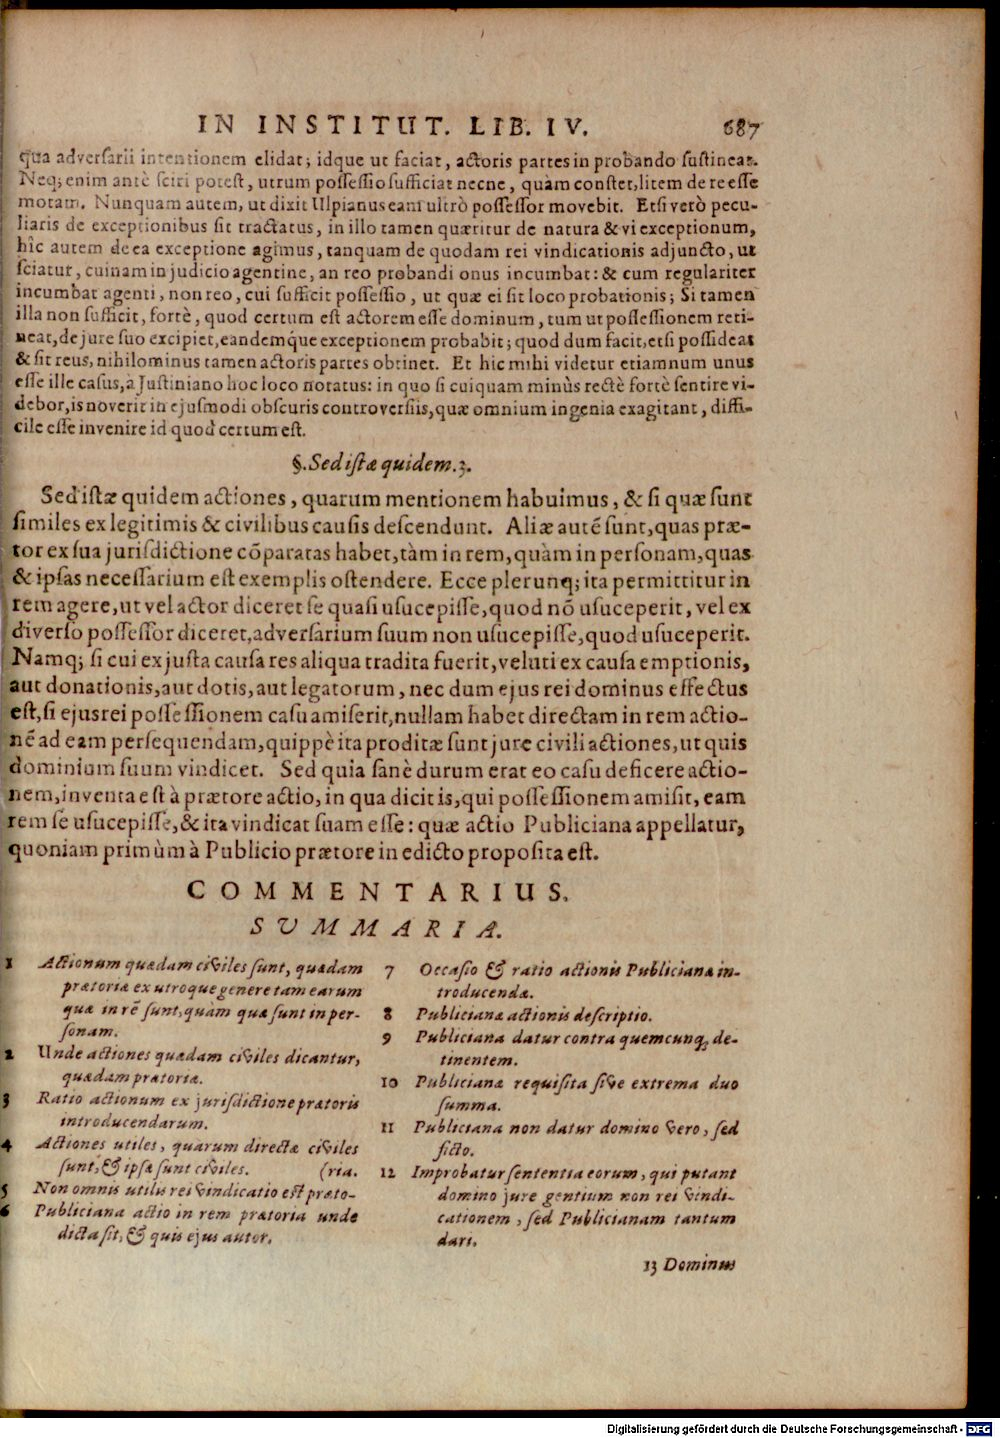 IN INSTITUT. LIB. IV. 687
qua adversarii intentionem elidat; idque ut faciat, actoris partes in probando sustineat.
Neq; enim antè sciri potest, utrum possessio sufficiat necne, quàm constet, litem de re esse
motam. Nunquam autem, ut dixit Ulpianus eam ultrò possessor movebit. Etsi verò pecu-
liaris de exceptionibus sit tractatus, in illo tamen quæritur de natura & vi exceptionum,
hîc autem de ea exceptione agimus, tanquam de quodam rei vindicationis adjuncto, ut
sciatur, cuinam in judicio agentine, an reo probandi onus incumbat: & cum regulariter
incumbat agenti, non reo, cui sufficit possessio, ut quæ ei sit loco probationis; Si tamen
illa non sufficit, fortè, quod certum est actorem esse dominum, tum ut possessionem reti-
neat, de jure suo excipiet, eandemque exceptionem probabit; quod dum facit, etsi possideat
& sit reus, nihilominus tamen actoris partes obtinet. Et hic mihi videtur etiamnum unus
esse ille casus, à Justiniano hoc loco notatus: in quo si cuiquam minùs rectè fortè sentire vi-
debor, is noverit in ejusmodi obscuris controversiis, quæ omnium ingenia exagitant, diffi-
cile esse invenire id quod certum est.
§. Sed istæ quidem. 3.
Sed istæ quidem actiones, quarum mentionem habuimus, & si quæ sunt
similes ex legitimis & civilibus causis descendunt. Aliæ autē sunt, quas præ-
tor ex sua jurisdictione cōparatas habet, tàm in rem, quàm in personam, quas
& ipsas necessarium est exemplis ostendere. Ecce plerunq; ita permittitur in
rem agere, ut vel actor diceret se quasi usucepisse, quod nō usuceperit, vel ex
diverso possessor diceret, adversarium suum non usucepisse, quod usuceperit.
Namq; si cui ex justa causa res aliqua tradita fuerit, veluti ex causa emptionis,
aut donationis, aut dotis, aut legatorum, nec dum ejus rei dominus effectus
est, si ejus rei possessionem casu amiserit, nullam habet directam in rem actio-
nē ad eam persequendam, quippè ita proditæ sunt jure civili actiones, ut quis
dominium suum vindicet. Sed quia sanè durum erat eo casu deficere actio-
nem, inventa est à prætore actio, in qua dicit is, qui possessionem amisit, eam
rem se usucepisse, & ita vindicat suam esse: quæ actio Publiciana appellatur,
quoniam primùm à Publicio prætore in edicto proposita est.
COMMENTARIUS.
SUMMARIA.
1 Actionum quædam civiles sunt, quædam
prætoriæ ex utroque genere tam earum
quæ in rē sunt, quàm quæ sunt in per-
sonam.
2 Unde actiones quædam civiles dicantur,
quædam prætoriæ.
3 Ratio actionum ex jurisdictione prætoris
introducendarum.
4 Actiones utiles, quarum directæ civiles
sunt, & ipsæ sunt civiles. (ria.
5 Non omnis utilis rei vindicatio est præto-
6 Publiciana actio in rem prætoria unde
dicta sit, & quis ejus autor.
7 Occasio & ratio actionis Publicianæ in-
troducendæ.
8 Publicianæ actionis descriptio.
9 Publiciana datur contra quemcunq; de-
tinentem.
10 Publicianæ requisita sive extrema duo
summa.
11 Publiciana non datur domino vero, sed
ficto.
12 Improbatur sententia eorum, qui putant
domino jure gentium non rei vindi-
cationem, sed Publicianam tantum
dari.
13 Dominus
Digitalisierung gefördert durch die Deutsche Forschungsgemeinschaft - DFG